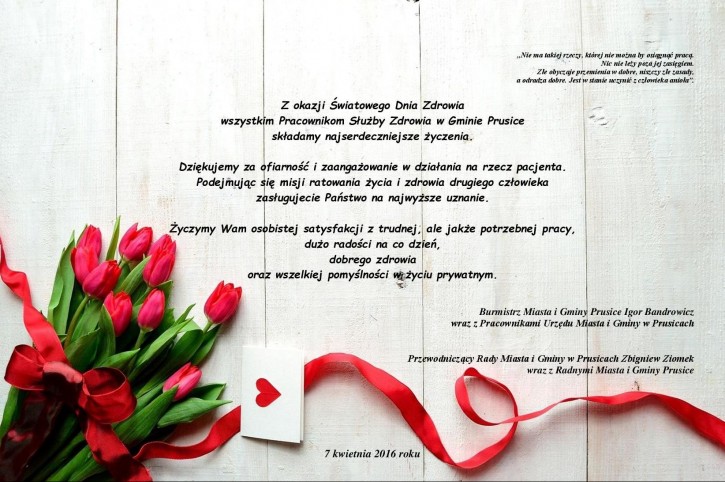 „Nie ma takiej rzeczy, której nie można by osiągnąć pracą.
Nic nie leży poza jej zasięgiem.
Złe obyczaje przemienia w dobre, niszczy złe zasady,
a odradza dobre. Jest w stanie uczynić z człowieka anioła”.
Z okazji Światowego Dnia Zdrowia
wszystkim Pracownikom Służby Zdrowia w Gminie Prusice
składamy najserdeczniejsze życzenia.
Dziękujemy za ofiarność i zaangażowanie w działania na rzecz pacjenta.
Podejmując się misji ratowania życia i zdrowia drugiego człowieka
zasługujecie Państwo na najwyższe uznanie.
Życzymy Wam osobistej satysfakcji z trudnej, ale jakże potrzebnej pracy,
dużo radości na co dzień,
dobrego zdrowia
oraz wszelkiej pomyślności w życiu prywatnym.
Burmistrz Miasta i Gminy Prusice Igor Bandrowicz
wraz z Pracownikami Urzędu Miasta i Gminy w Prusicach
Przewodniczący Rady Miasta i Gminy w Prusicach Zbigniew Ziomek
wraz z Radnymi Miasta i Gminy Prusice
7 kwietnia 2016 roku